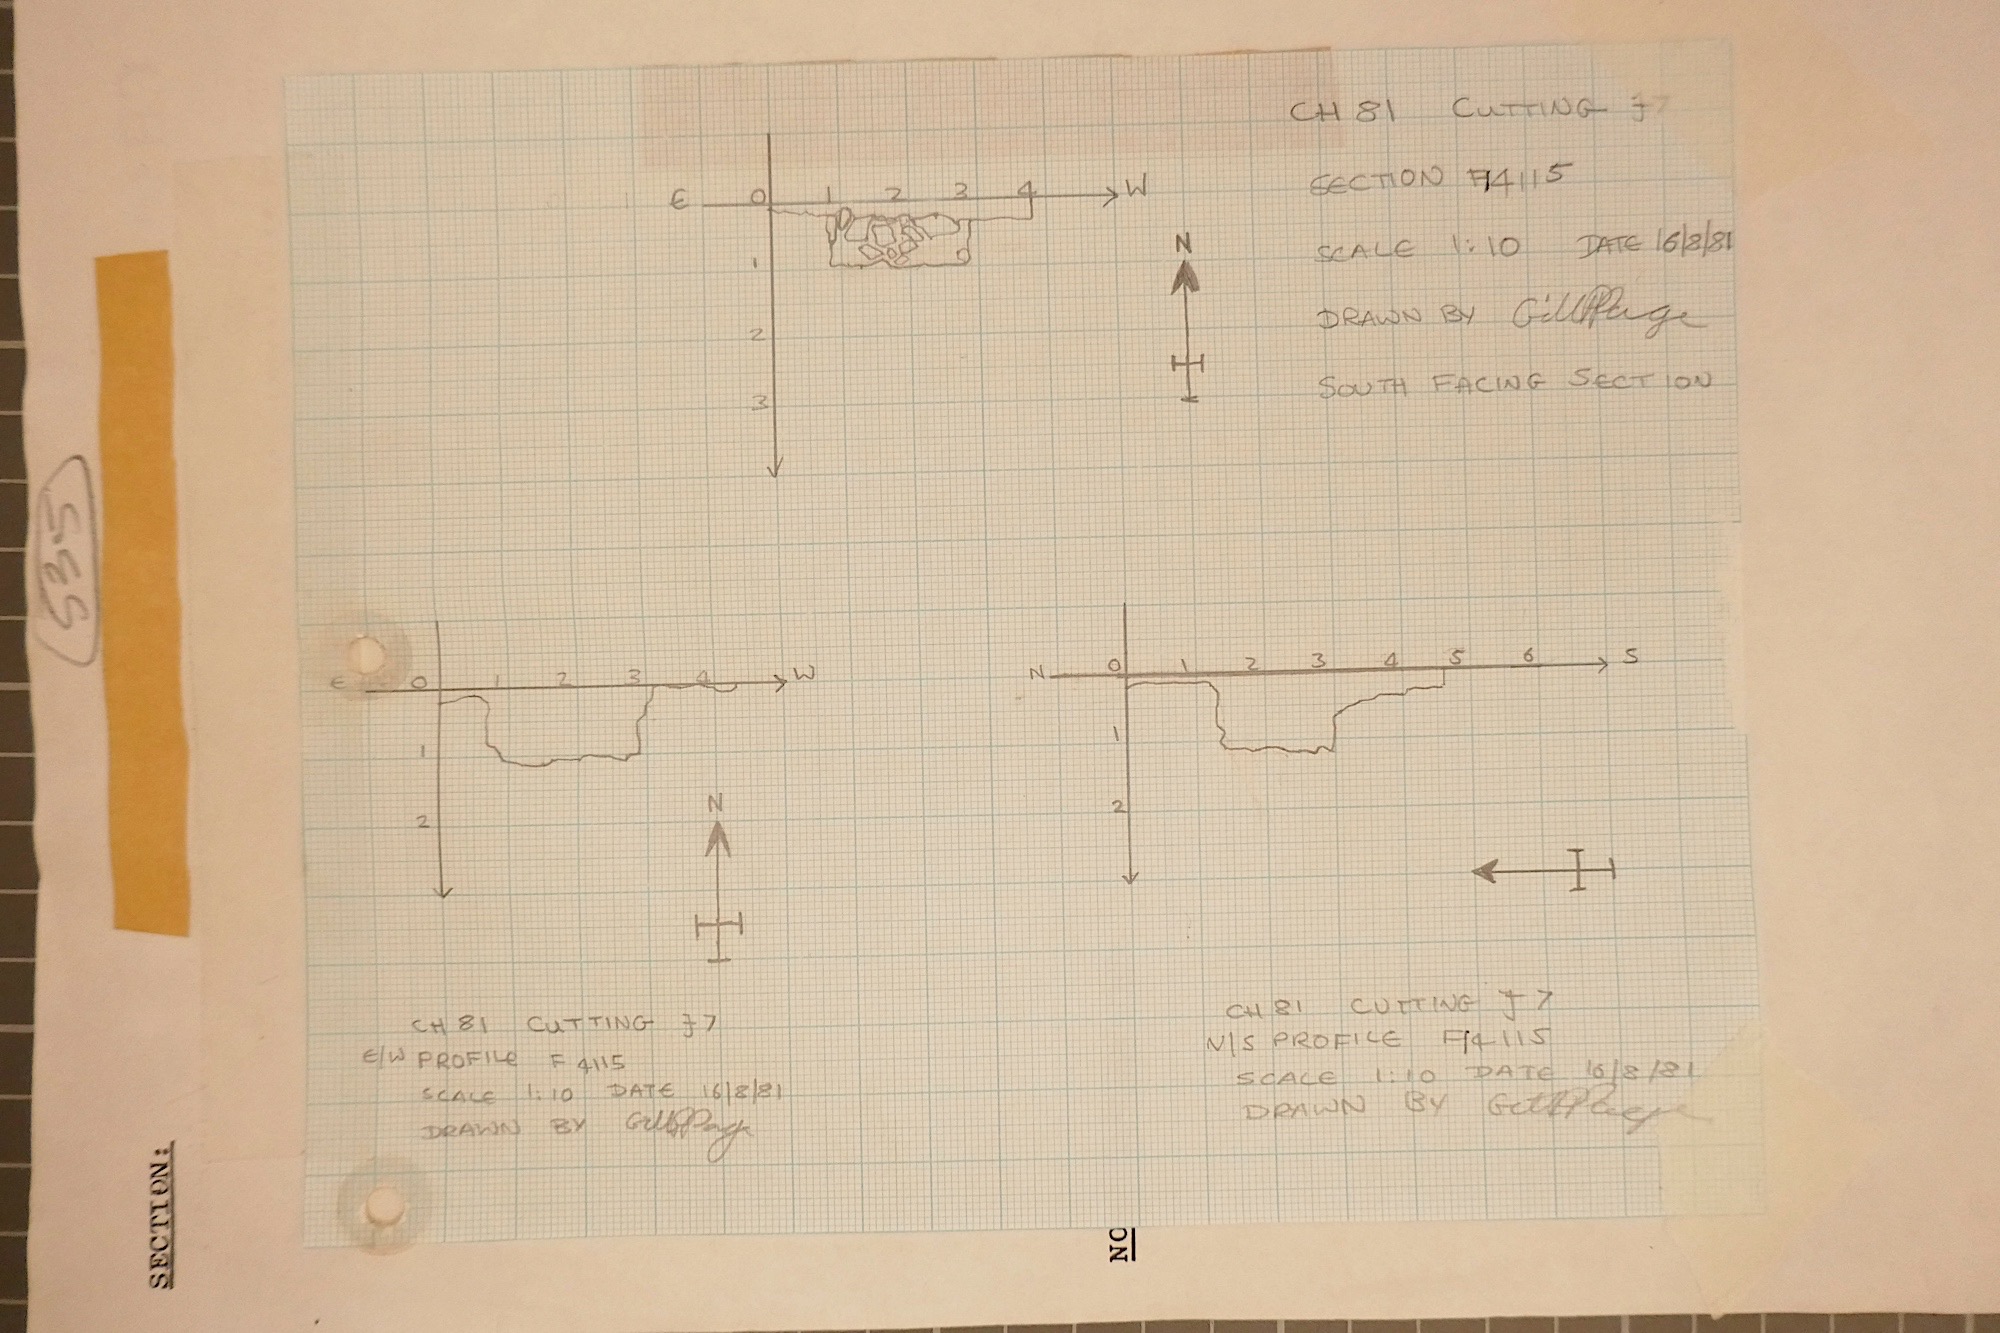 CH 81 CUTTING J7
SECTION F4115
SCALE 1:10 DATE 16/8/81
DRAWN BY Gill Page
SOUTH FACING SECTION
E 0 1 2 3 4 W
1
2
3
N
535
E 0 1 2 3 4 W
1
2
N
N 0 1 2 3 4 5 6 S
1
2
CH 81 CUTTING J7
E/W PROFILE F 4115
SCALE 1:10 DATE 16/8/81
DRAWN BY Gill Page
CH 81 CUTTING J7
N/S PROFILE F4115
SCALE 1:10 DATE 16/8/81
DRAWN BY Gill Page
SECTION:
NO